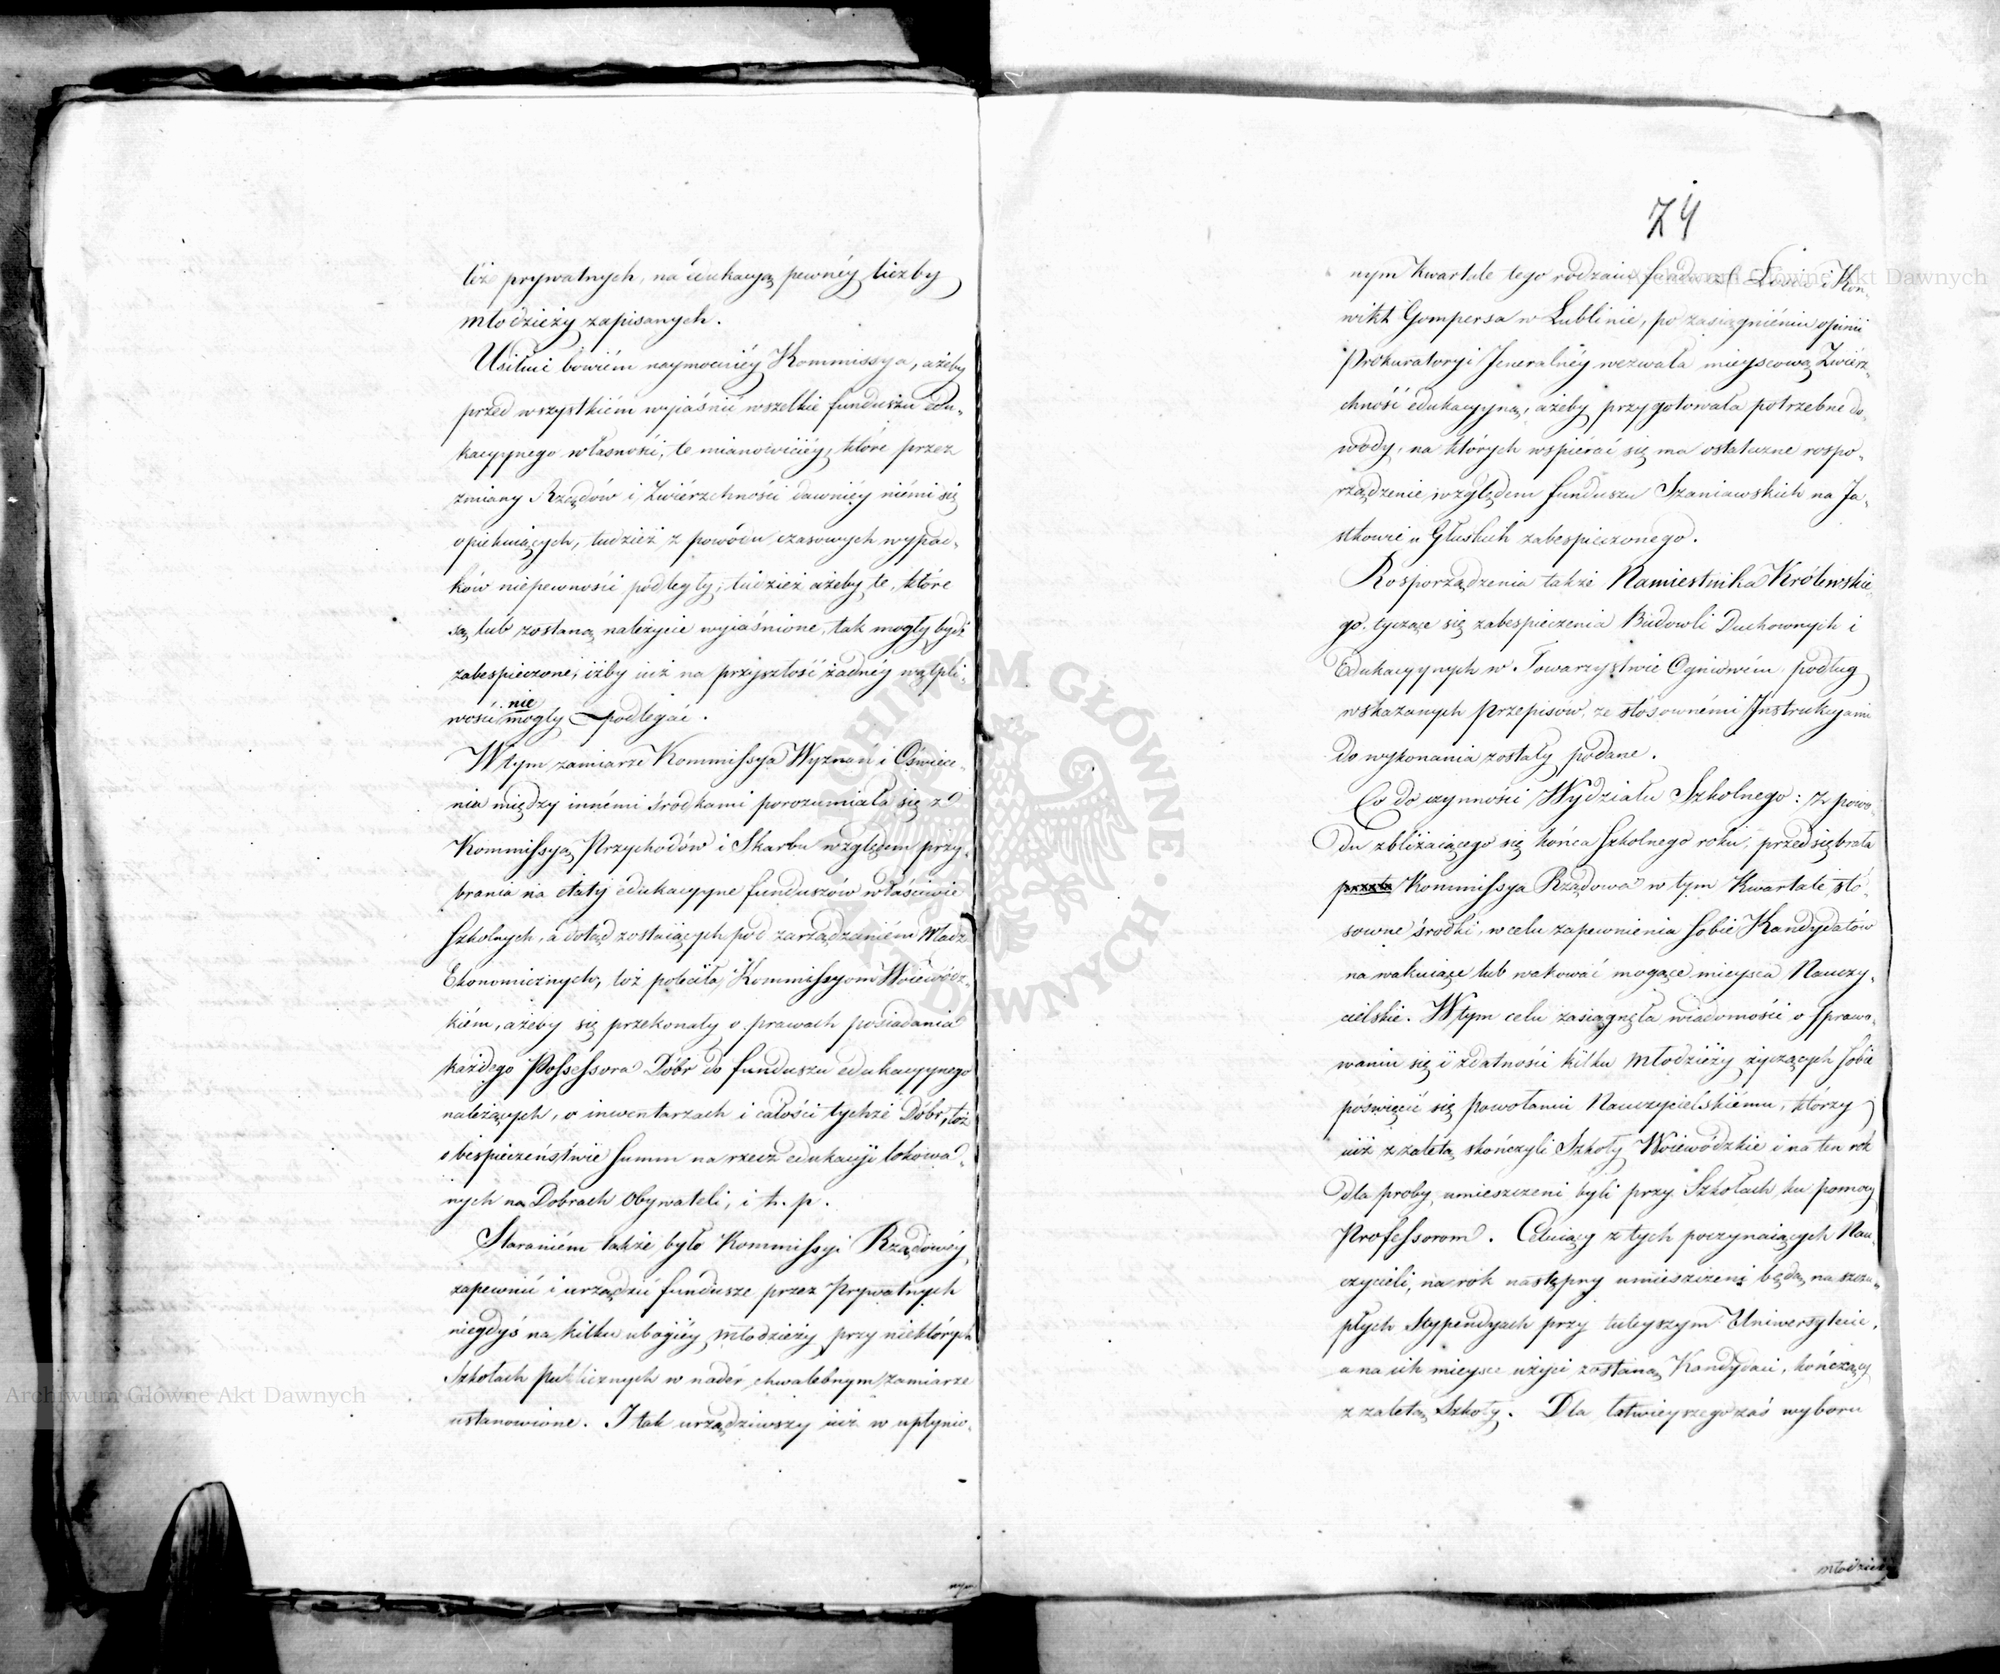 též prywatnych, na edukacyą pewnéy liczby
młodzieży zapisanych.
Usiłuie bowiém naymocniéy Kommissya, ażeby
przed wszystkiém wyiaśnić wszelkie funduszu edu-
kacyynego własności, te mianowiciéy, które przez
zmiany Rządów i Zwiérzchności dawniéy niémi się
opiekuiących, tudzież z powodu czasowych wypad-
ków niepewności podległy; tudzież ażeby te, które
są lub zostaną należycie wyiaśnione, tak mogły bydź
zabespieczone, iżby iuż na przyszłość żadnéy wątpli-
wości nie mogły podlegać.
W tym zamiarze Kommissya Wyznań i Oświece-
nia między innémi śródkami porozumiała się z
Kommissyą Przychodów i Skarbu względem przy-
brania na etaty edukacyyne funduszów właściwie
szkolnych, a dotąd zostaiących pod zarządzaniém Władz
Ekonomicznych, toż poleciła Kommissyom Woiewódz-
kiém, ażeby się przekonały o prawach posiadania
każdego Possessora Dóbr do funduszu edukacyynego
należących, o inwentarzach i całości tychże Dóbr, toż
o bespieczeństwie summ na rzecz edukacyi lokowa-
nych na Dobrach Obywateli, i t. p.
Staraniém także było Kommissyi Rządowéy,
zapewnić i urządzić fundusze przez Prywatnych
niegdyś na kilku ubogiéy młodzieży przy niektórych
Szkołach publicznych w nader chwalebnym zamiarze
ustanowione. I tak urządziwszy iuż w upłynio-
nym
74
nym kwartale tego rodzaiu fundusz i Kon-
wikt Gompersa w Lublinie, po zasiągnieniu opinii
Prokuratoryi Jeneralnéy wezwała mieyscową Zwiérz-
chność edukacyyną, ażeby przygotowała potrzebne do-
wody, na których wspiérać się ma ostateczne rospo-
rządzenie względem funduszu Szaniawskich na Ja-
stkowie i Głuskich zabespieczonego.
Rosporządzenia także Namiestnika Królewskie
go, tyczące się zabespieczenia Budowli Duchownych i
Edukacyynych w Towarzystwie Ogniowém, podług
wskazanych przepisów, ze stosownémi Instrukcyami
do wykonania zostały podane.
Co do czynności Wydziału Szkolnego: z powo-
du zbliżaiącego się końca szkolnego roku, przedsiębrała
Kommissya Rządowa w tym Kwartale sto-
sowne środki, w celu zapewnienia sobie Kandydatów
na wakuiące lub wakować mogące mieysca Nauczy-
cielskie. W tym celu zasiągnęła wiadomości o sprawo-
waniu się i zdatności kilku młodzieży życzących sobie
poświęcić się powołaniu Nauczycielskiému, którzy
iuż z zaletą skończyli Szkoły Woiewódzkie i na ten rok
dla proby umieszczeni byli przy Szkołach ku pomocy
Professorom. Celuiący z tych poczynaiących Nau-
czycieli, na rok następny umieszczeni będą na szczu-
płych Stypendyach przy tuteyszym Uniwersytecie,
a na ich mieysce użyci zostaną Kandydaci, kończący
z zaletą Szkoły. Dla łatwieyszego zaś wyboru
młodzieży
Archiwum Główne Akt Dawnych
Archiwum Główne Akt Dawnych
ARCHIWUM GŁÓWNE AKT DAWNYCH